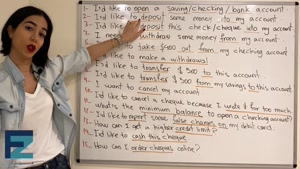 1- I'd like to open a saving/checking/bank account
2- I'd like to deposit some money into my account
3- I'd like to deposit this check/cheque into my account
4- I need withdraw some money from my account
take $400 out from my checking account
like to make a withdrawal
I'd like to transfer $500 to this account
I'd like to transfer $ 300 from my savings to this account
I want to cancel my account
I'd like to cancel a cheque because I wrote it for too much
What's the minimum balance to open a checking account?
I'd like to report some false charges on my debit card.
How can I get a higher credit limit?
I'd like to cash this cheque
How can I order cheques online?
EZ